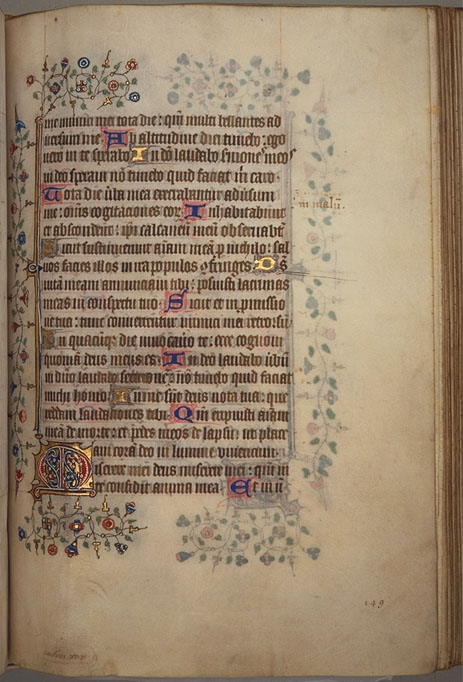 me inimici mei tota die: qm̄ multi bellantes ad
uersum me Ab altitudine diei timebo: ego
uero in te sperabo In deo laudabo s̄mones meos
in deo speraui nō timebo quid faciat m̄ caro.
Tota die ūba mea execrabantur aduersum
me: om̄s cogitationes eor. Inhabitabunt
in malū.
et abscondent: ipi calcaneū meū obseruabūt
Sicut sustinuerunt aīam meā p nichilo: sal
uos facies illos in ira populos ꝯfringes. Ds
uitam meam annunciaui tibi: posuisti lacrimas
meas in conspectu tuo. Sicut et in promissio
ne tua: tunc conuertentur inimici mei retro:
In quacūq die inuocauero te: ecce cognoui
quoniā deus meus es. In deo laudabo ūbū
in dn̄o laudabo sermonē: nō timebo quid faciat
michi homo. In me deus uota tua: que
reddam laudationes tibi. Qm̄ eripuisti aīam
meā de morte: et pedes meos de lapsu: ut place
am coram deo in lumine uiuentium.
Miserere mei deus miserere mei: qm̄ in
te confidit anima mea. Et in u
149